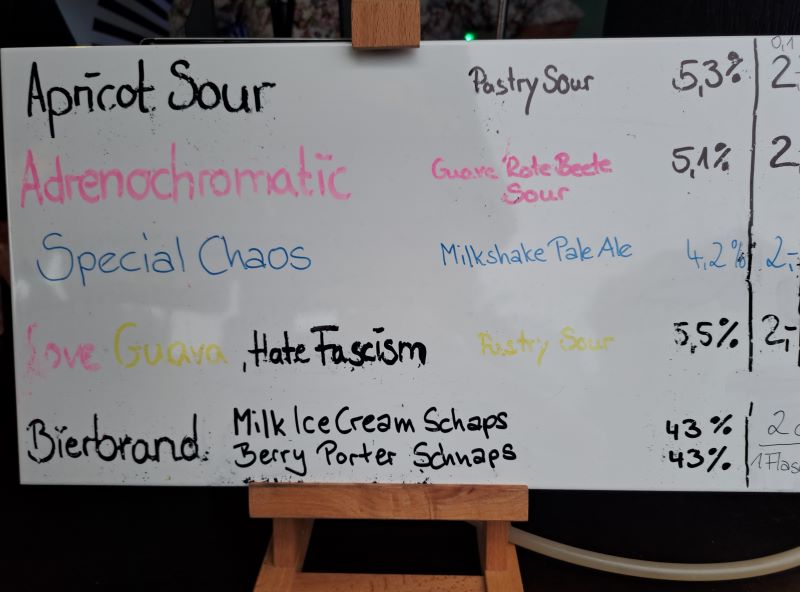 0,1
Apricot Sour Pastry Sour 5,3% 2,-
Adrenochromatic Guave Rote Beete Sour 5,1% 2,
Special Chaos Milkshake Pale Ale 4,2% 2,-
Love Guava, Hate Fascism Pastry Sour 5,5% 2,-
Bierbrand Milk Ice Cream Schaps 43% 2 c
Berry Porter Schnaps 43% 1 Flas